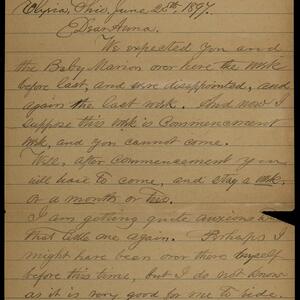 Elyria, Ohio, June 28th, 1897.
Dear Anna.
We expected you and
the Baby Marion over here the week
before last, and were disappointed, and
again the last week. And now I
suppose this wk is Commencement
wk, and you cannot come.
Well, after Commencement you
will have to come, and stay a wk,
or a month or two.
I am getting quite anxious
that little one again. Perhaps I
might have been over there myself
before this time, but I do not know
as it is very good for me to ride